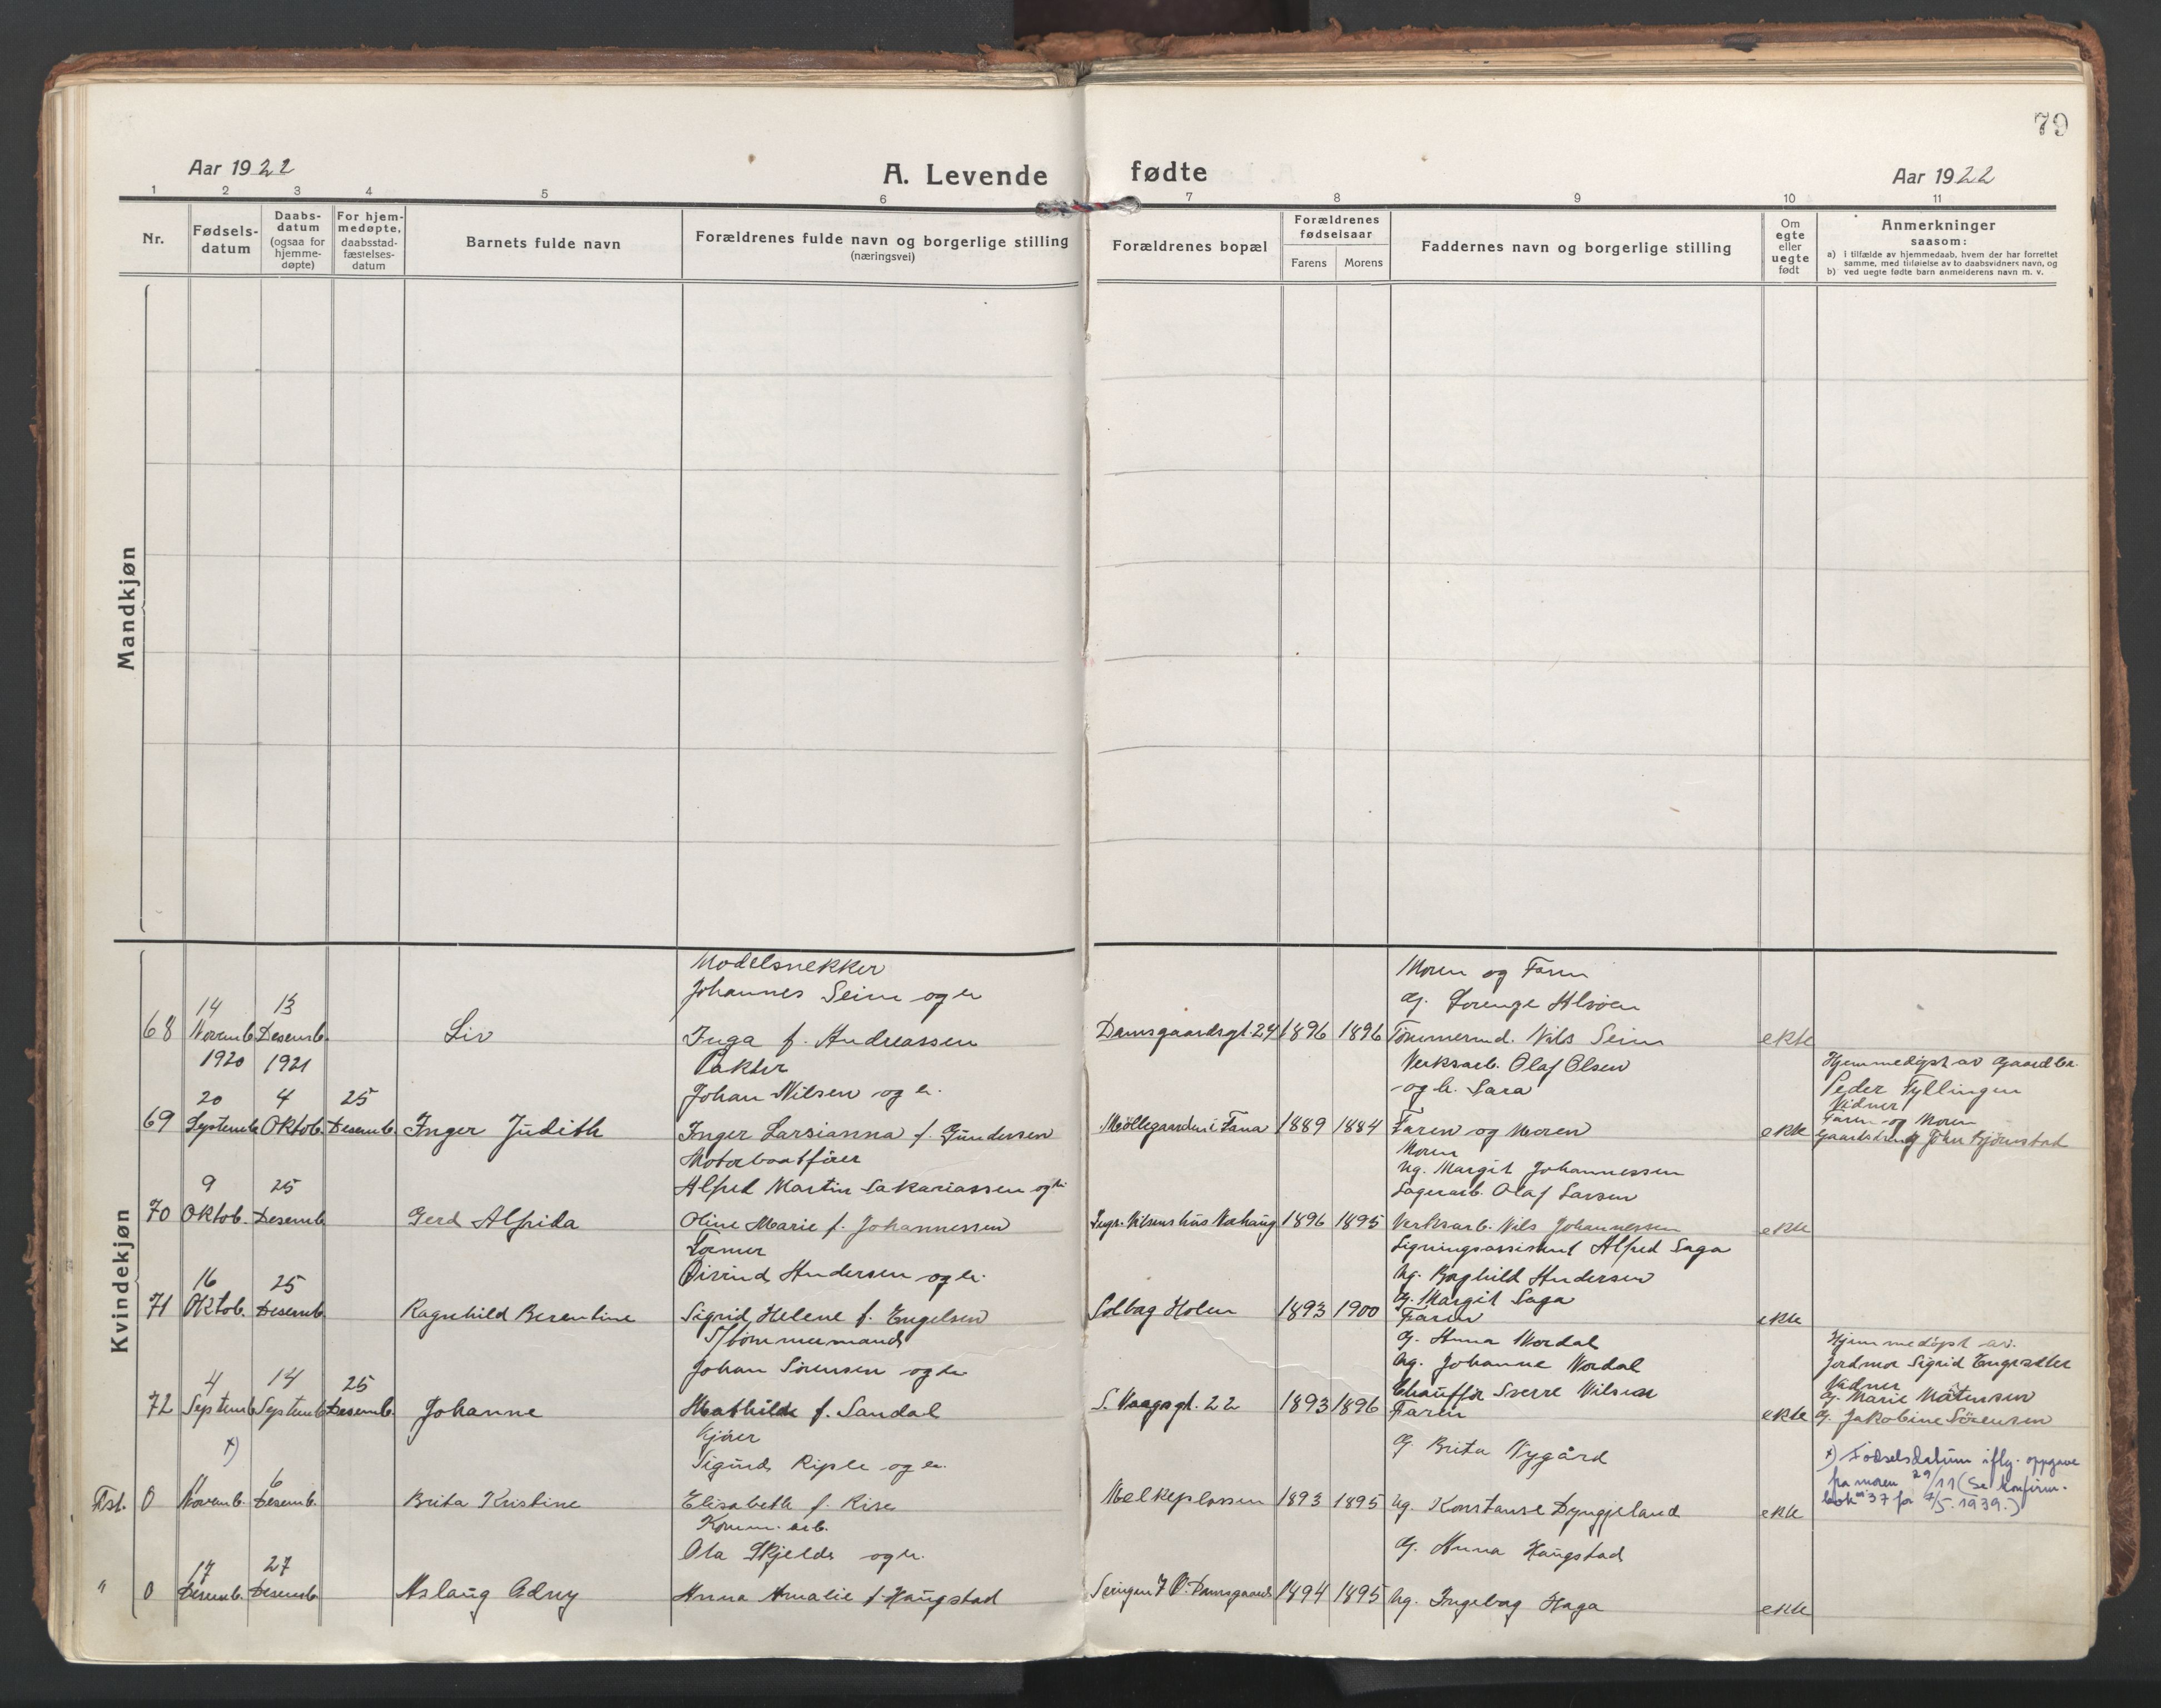 79
Aar 1922
A. Levende fødte
Aar 1922
1 2 3 4 5 6 7 8 9 10 11
Nr.
Fødsels-
datum
Daabs-
datum
(ogsaa for
hjemme-
døpte)
For hjem-
medøpte,
daabsstad-
fæstelses-
datum
Barnets fulde navn
Forældrenes fulde navn og borgerlige stilling
(næringsvei)
Forældrenes bopæl
Forældrenes
fødselsaar
Farens Morens
Faddernes navn og borgerlige stilling
Om
egte
eller
uegte
født
Anmerkninger
saasom:
a) i tilfælde av hjemmedaab, hvem der har forrettet
samme, med tilføielse av to daabsvidners navn, og
b) ved uegte fødte barn anmelderens navn m. v.
Mandkjøn
Kvindekjøn
68
14
Novemb.
13
Desemb.
Liv
Modelsnekker
Johannes Seim og h
Inga f. Andreassen
Damsgaardsgt. 24
1896
1896
Moren og Faren
G. Lorenze Alsöen
Tömmermd. Nils Seim
ekte
69
1920
20
Septemb.
1921
4
Oktob.
25
Desemb.
Inger Judith
Pakter
Johan Nilsen og h.
Inger Larsianna f. Gundersen
Möllegaarden i Fana
1889
1884
Verksarb. Olaf Olsen
og h. Sara
Faren og Moren
ekte
Hjemmedöpt av Gaardbr.
Peder Fyllingen
Vidner
Faren og Moren
Gaardsdreng John Björnstad
70
9
Oktob.
25
Desemb.
Gerd Alfrida
Motorbaatförer
Alfred Martin Sakariassen og h.
Oline Marie f. Johannessen
Ingr. Nilsens hus
1896
1895
Moren
Ug. Margit Johannessen
Lagerarb. Olaf Larsen
Verksarb. Nils Johannessen
ekte
71
16
Oktob.
25
Desemb.
Ragnhild Berentine
Former
Öivind Andersen og h.
Sigrid Helene f. Engelsen
Solbag Holen
1893
1900
Ligningsassistent Alfred Saga
Ug. Borghild Andersen
G. Margit Saga
Faren
ekte
72
4
Septemb.
14
Septemb.
25
Desemb.
Johanne
S/tömmermand
Johan Sörensen og h.
Mathilde f. Sandal
S. Vaagsgt. 22
1893
1896
G. Anna Nordal
Ug. Johanne Nordal
Chaufför Sverre Nilsen
Faren
ekte
Hjemmedöpt av.
Jordmor Sigrid Engesæter
Vidner
G. Marie Matinsen
G. Jakobine Sörensen
Tst. 0
x)
Novemb.
6
Desemb.
Brita Kristine
Kjörer
Sigurd Riple og h.
Elisabeth f. Rise
Melkeplassen
1893
1895
G. Brita Nygård
Ug. Konstanse Dyngjeland
ekte
x) Fodselsdatum iflg. oppgave
fra moren 29/11 (Se konfirm.
bok nr 37 for 7/5. 1939.)
" 0
17
Desemb.
27
Desemb.
Aslaug Odny
Komm. arb.
Ola Skjelde og h.
Anna Amalie f. Haugstad
Seringen 7 Ö. Damsgaard
1894
1895
G. Anna Haugstad
Ug. Ingeborg Haga
ekte